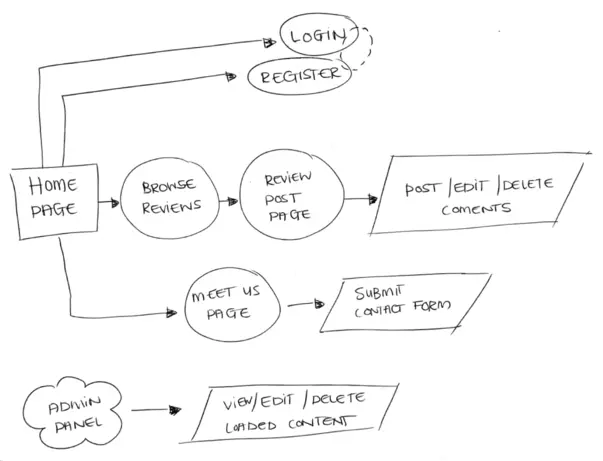 LOGIN
REGISTER
HOME
PAGE
BROWSE
REVIEWS
REVIEW
POST
PAGE
POST /EDIT /DELETE
COMENTS
MEET US
PAGE
SUBMIT
CONTACT FORM
ADMIN
PANEL
VIEW/EDIT /DELETE
LOADED CONTENT